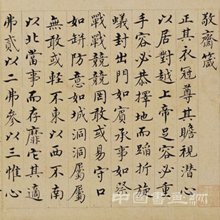 敬齋箴
正其衣冠尊其瞻視潛心
以居對越上帝足容必重
手容必恭擇地而蹈折旋
蟻封出門如賓承事如祭
戰戰兢兢罔敢或易守口
如缾防意如城洞洞屬屬
無敢或輕不東以西不南
以北當事而存靡它其適
弗貳以二弗參以三惟心